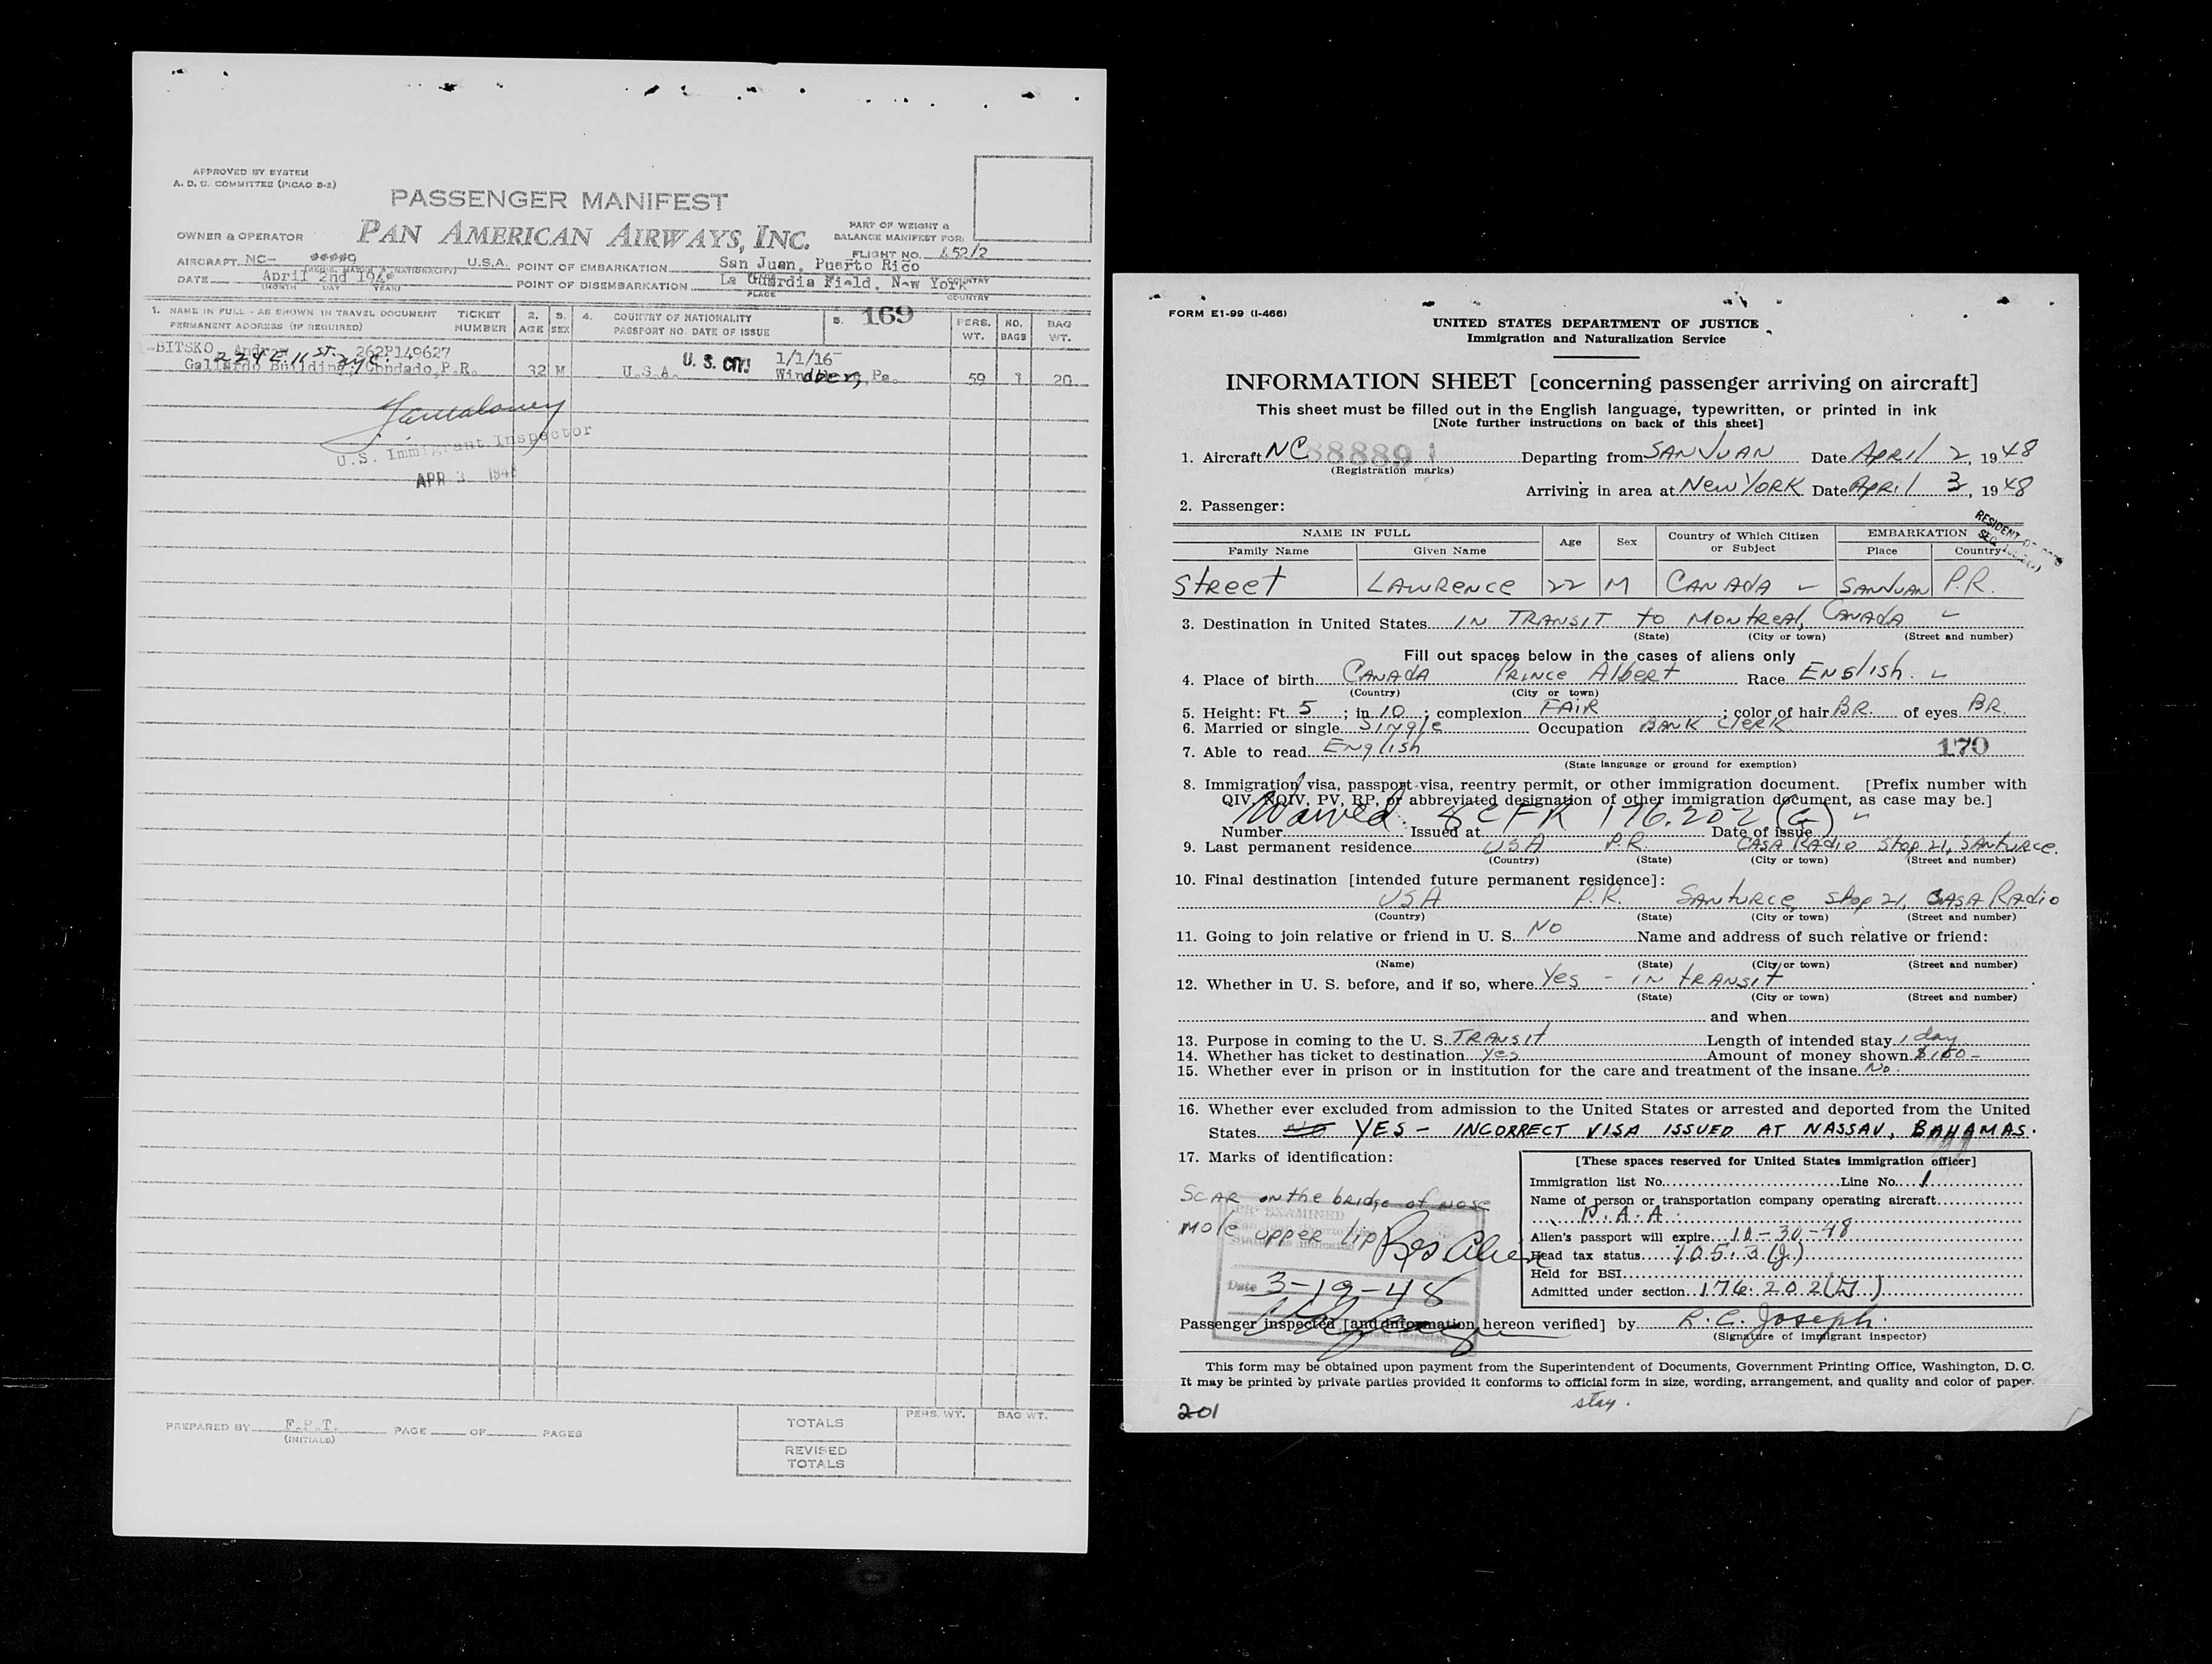 APPROVED BY SYSTEM
A. D. C. COMMITTEE (PICAO B-2)
PASSENGER MANIFEST
OWNER & OPERATOR PAN AMERICAN AIRWAYS, INC.
PART OF WEIGHT &
BALANCE MANIFEST FOR:
FLIGHT NO. 452/2
AIRCRAFT NC- U.S.A. POINT OF EMBARKATION San Juan, Puerto Rico
DATE April 2nd 194 POINT OF DISEMBARKATION La Guardia Field, New York
(MONTH DAY YEAR) PLACE COUNTRY
1. NAME IN FULL - AS SHOWN IN TRAVEL DOCUMENT TICKET 2. 3. 4. COUNTRY OF NATIONALITY 5. 169 PERS. NO. BAG
PERMANENT ADDRESS (IF REQUIRED) NUMBER AGE SEX PASSPORT NO. DATE OF ISSUE WT. BAGS WT.
BITSKO, Andrew 262P149627 U. S. CIT. 1/1/16
224 E. 11 ST. NYC.
Galiardo Building, Condado, P.R. 32 M U.S.A. Windber, Pa. 59 1 20
U.S. Immigrant Inspector
APR 3 1948
PREPARED BY F.P.T. PAGE OF PAGES
(INITIALS)
PERS. WT. BAG WT.
TOTALS
REVISED
TOTALS
FORM E1-99 (I-466)
UNITED STATES DEPARTMENT OF JUSTICE
Immigration and Naturalization Service
INFORMATION SHEET [concerning passenger arriving on aircraft]
This sheet must be filled out in the English language, typewritten, or printed in ink
[Note further instructions on back of this sheet]
1. Aircraft NC 88891 Departing from SAN JUAN Date APRIL 2, 1948
(Registration marks)
Arriving in area at New YORK Date APRIL 3, 1948
2. Passenger:
RESIDENT OF
NAME IN FULL Age Sex Country of Which Citizen or Subject EMBARKATION
Family Name Given Name Place Country
Street LAWRENCE 22 M CANADA SANJUAN P.R.
3. Destination in United States IN TRANSIT to MONtReAL, CANADA
(State) (City or town) (Street and number)
Fill out spaces below in the cases of aliens only
4. Place of birth CANADA PRINCE Albert Race ENglish.
(Country) (City or town)
5. Height: Ft. 5; in 10; complexion FAIR; color of hair BR. of eyes BR.
6. Married or single Single Occupation BANK CleRK
7. Able to read English 170
(State language or ground for exemption)
8. Immigration visa, passport visa, reentry permit, or other immigration document. [Prefix number with
QIV, NQIV, PV, RP, or abbreviated designation of other immigration document, as case may be.]
Waived. 8 CFR 176.202 (G)
Number Issued at Date of issue
9. Last permanent residence USA P.R. CASA RADIO Stop 21, SANTURCE.
(Country) (State) (City or town) (Street and number)
10. Final destination [intended future permanent residence]:
USA P.R. SANTURCE, Stop 21, CASA RAdio
(Country) (State) (City or town) (Street and number)
11. Going to join relative or friend in U. S. No Name and address of such relative or friend:
(Name) (State) (City or town) (Street and number)
12. Whether in U. S. before, and if so, where Yes - IN tRANSIt
(State) (City or town) (Street and number)
and when
13. Purpose in coming to the U. S. TRANSIt Length of intended stay 1 day
14. Whether has ticket to destination yes Amount of money shown $100-
15. Whether ever in prison or in institution for the care and treatment of the insane No.
16. Whether ever excluded from admission to the United States or arrested and deported from the United
States NO YES - INCORRECT VISA ISSUED AT NASSAU, BAHAMAS.
17. Marks of identification:
SCAR on the bridge of nose
Mole upper lip Res Alien
PRE EXAMINED
San Juan, Puerto
Status as Indicated
Date 3-19-48
Immigrant Inspector.
[These spaces reserved for United States immigration officer]
Immigration list No. Line No. 1
Name of person or transportation company operating aircraft
P.A.A.
Alien's passport will expire 10-30-48
Head tax status 105.3(j)
Held for BSI
Admitted under section 176.202(G)
Passenger inspected [and information hereon verified] by R. C. Joseph.
(Signature of immigrant inspector)
This form may be obtained upon payment from the Superintendent of Documents, Government Printing Office, Washington, D. C.
It may be printed by private parties provided it conforms to official form in size, wording, arrangement, and quality and color of paper.
stay.
201